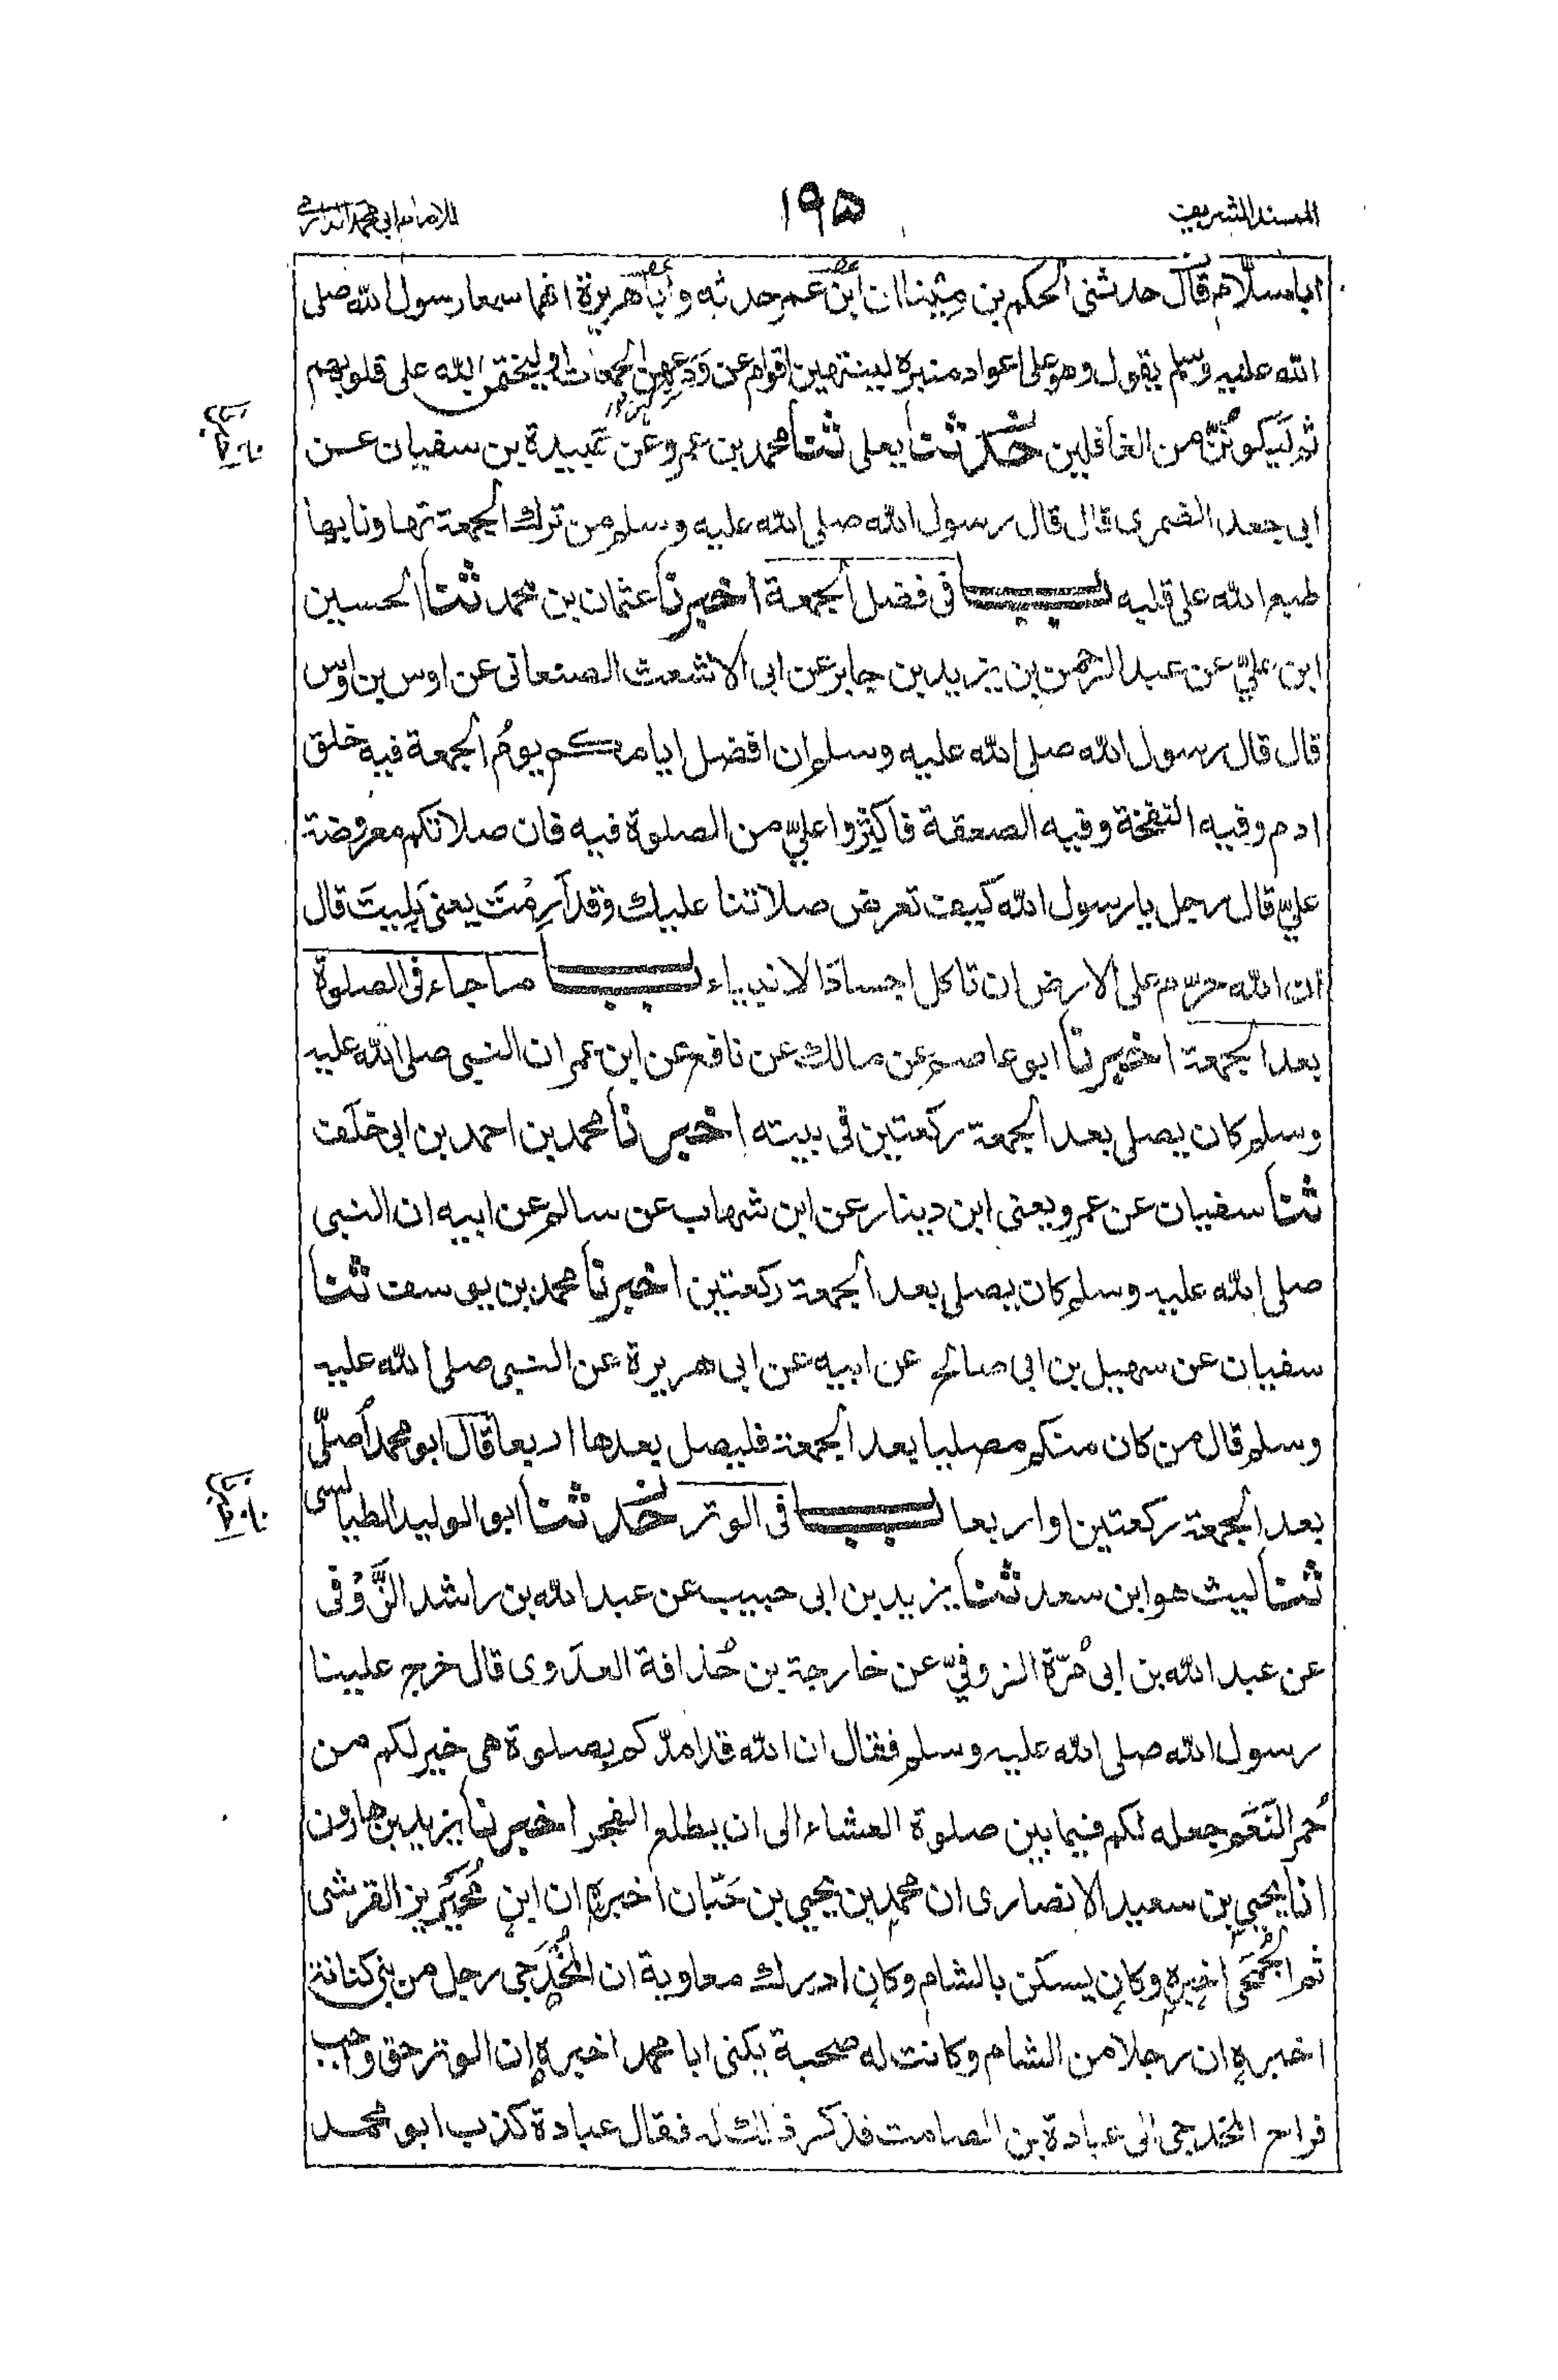 المسند الشريف
١٩٥
للامام ابي محمد الدارمي
اباسلّام قال حدثني الحكم بن مِيْنا ان ابن عمر حدثه وابا هريرة انهما سمعا رسول الله صلى
الله عليه وسلم يقول وهو على اعواد منبره لينتهين اقوام عن وَدَعهم الجمعات او ليختمن الله على قلوبهم
ثم ليكونُنّ من الغافلين حدثنا يعلى ثنا محمد بن عمرو عن عَبيدة بن سفيان عن
ابى جعد الضمرى قال قال رسول الله صلى الله عليه وسلم من ترك الجمعة تهاونا بها
طبع الله على قلبه باب فى فضل الجمعة اخبرنا عثمان بن محمد ثنا الحسين
ابن عليّ عن عبد الرحمن بن يزيد بن جابر عن ابى الاشعث الصنعانى عن اوس بن اوس
قال قال رسول الله صلى الله عليه وسلم ان افضل ايامكم يومُ الجمعة فيه خلق
ادم وفيه النفخة وفيه الصعقة فاكثِروا عليّ من الصلوة فيه فان صلاتكم معروضة
عليّ قال رجل يا رسول الله كيف تعرض صلاتنا عليك وقد اَرِمْتَ يعنى بَلِيتَ قال
ان الله حرّم على الارض ان تاكل اجساد الانبياء باب ما جاء فى الصلوة
بعد الجمعة اخبرنا ابو عاصم عن مالك عن نافع عن ابن عمر ان النبى صلى الله عليه
وسلم كان يصلى بعد الجمعة ركعتين فى بيته اخبرنا محمد بن احمد بن ابى خلف
ثنا سفيان عن عمرو يعنى ابن دينار عن ابن شهاب عن سالم عن ابيه ان النبى
صلى الله عليه وسلم كان يصلى بعد الجمعة ركعتين اخبرنا محمد بن يوسف ثنا
سفيان عن سهيل بن ابى صالح عن ابيه عن ابى هريرة عن النبى صلى الله عليه
وسلم قال من كان منكم مصليا بعد الجمعة فليصل بعدها اربعا قال ابو محمد اُصلّى
بعد الجمعة ركعتين او اربعا باب فى الوتر حدثنا ابو الوليد الطيالسى
ثنا ليث هو ابن سعد ثنا يزيد بن ابى حبيب عن عبد الله بن راشد الزَّوْفى
عن عبد الله بن ابى مُرّة الزوفيّ عن خارجة بن حُذافة العدَوى قال خرج علينا
رسول الله صلى الله عليه وسلم فقال ان الله قد امدّكم بصلوة هى خير لكم من
حُمر النَعَم جعله لكم فيما بين صلوة العشاء الى ان يطلع الفجر اخبرنا يزيد بن هارون
انا يحيى بن سعيد الانصارى ان محمد بن يحيى بن حَبّان اخبره ان ابن مُحَيْرِيز القرشى
ثم الجُمَحى اخبره وكان يسكن بالشام وكان ادرك معاوية ان المُخْدَجى رجل من بنى كنانة
اخبره ان رجلا من الشام وكانت له صحبة يكنى ابا محمد اخبره ان الوتر حق واجب
فراح المخدجى الى عبادة بن الصامت فذكر ذلك له فقال عبادة كذب ابو محمد